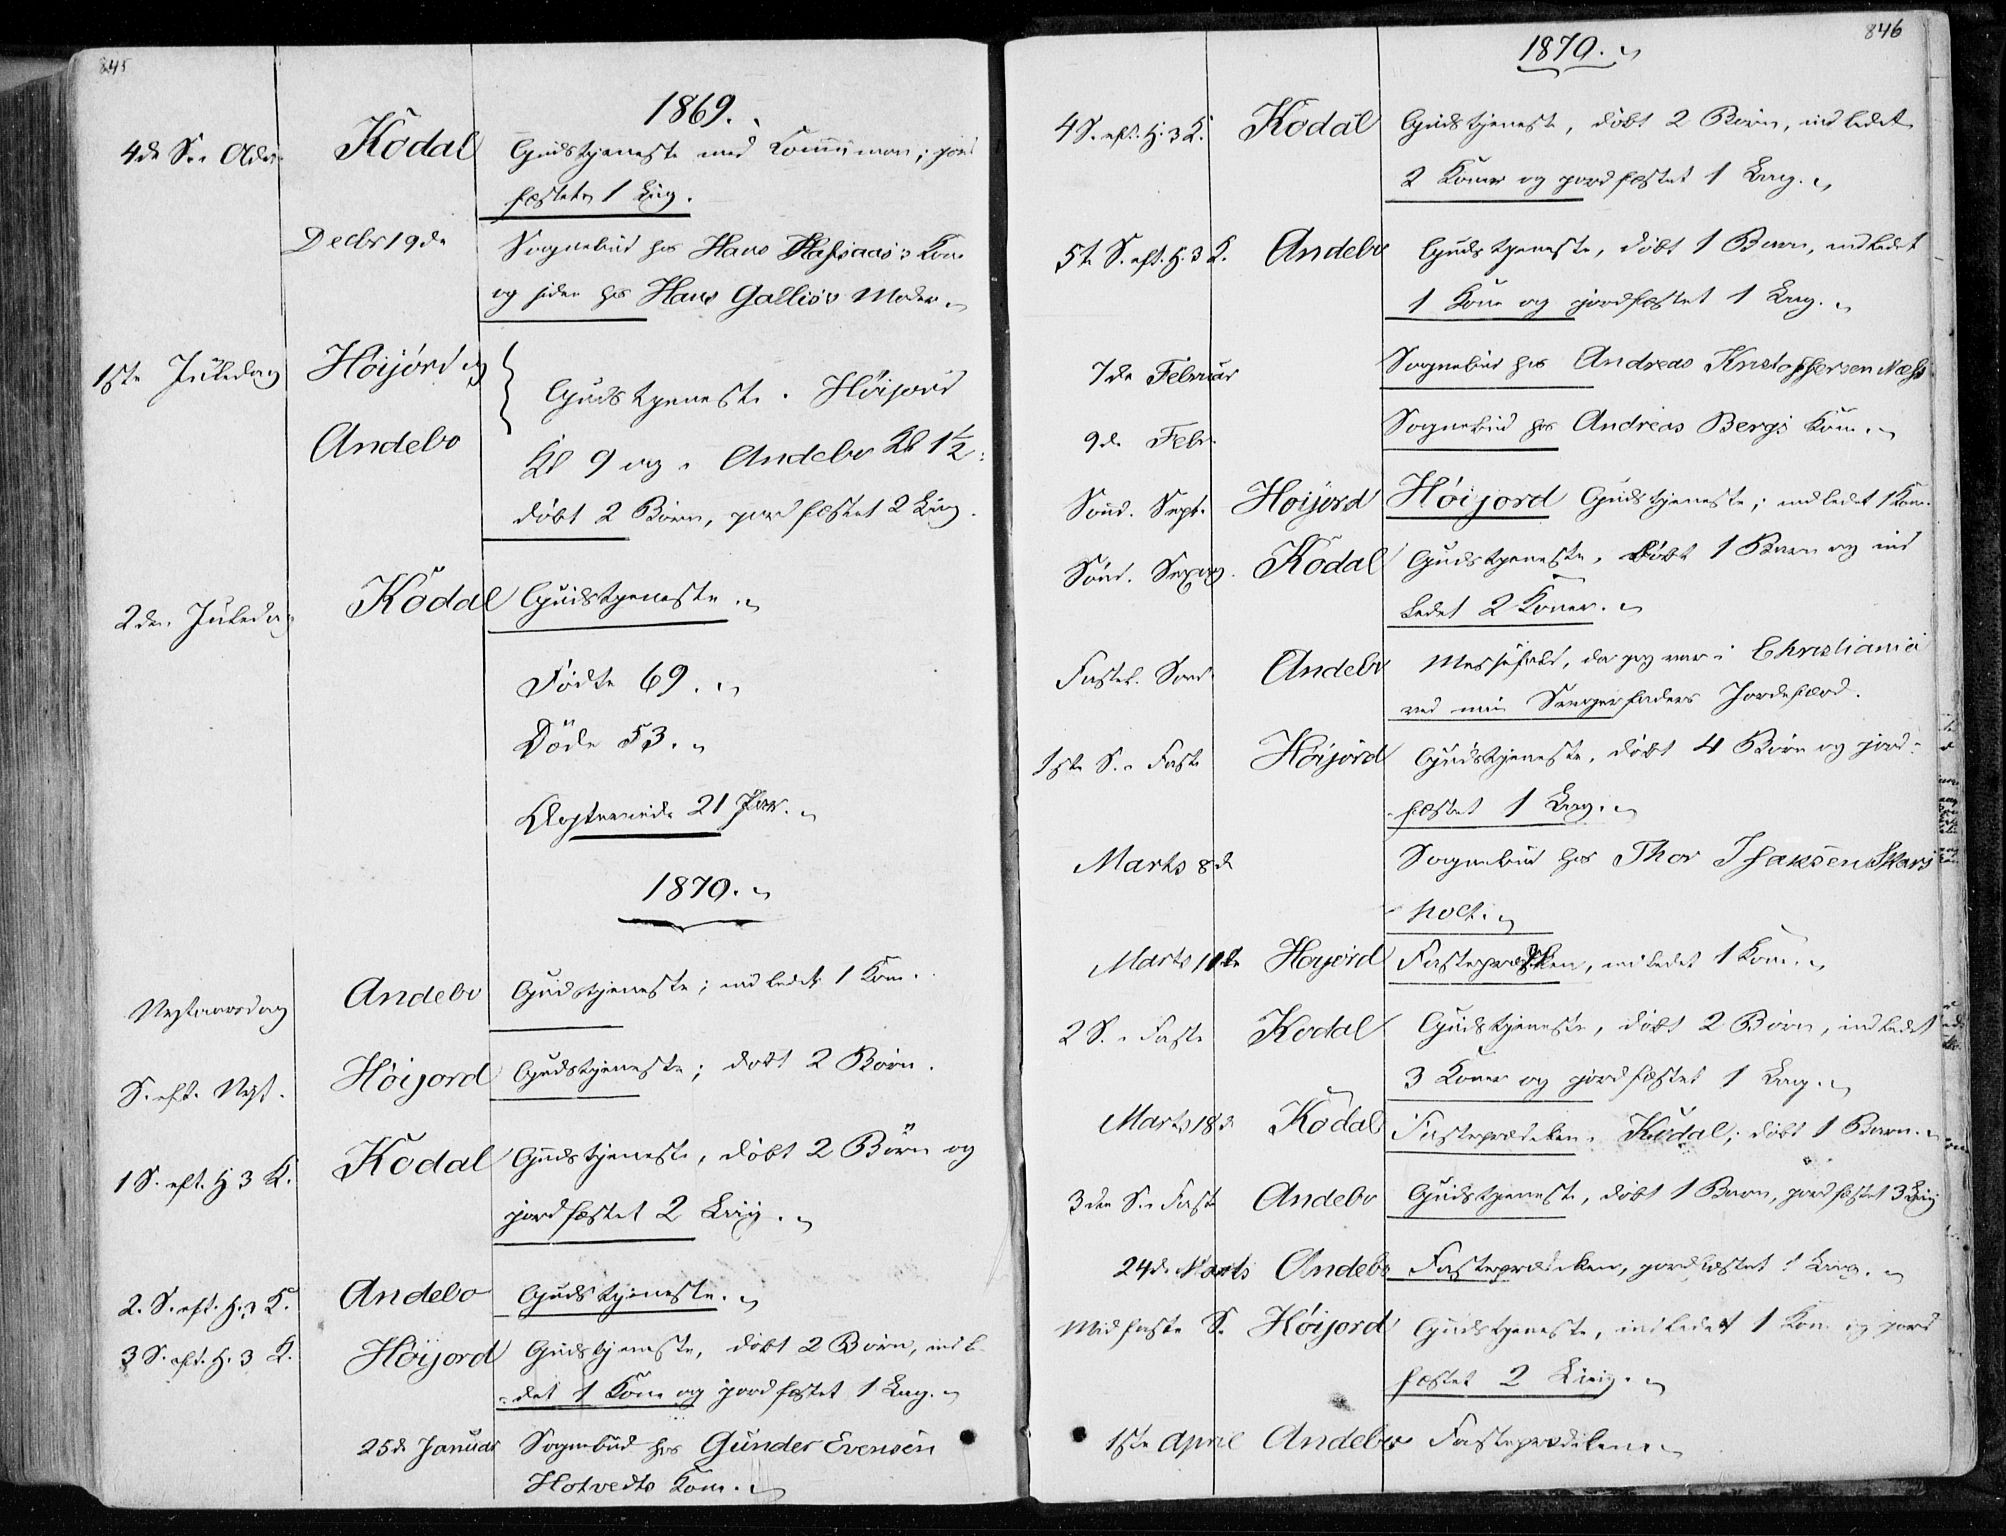 845
1869.
4de S. i Adv. Kodal Gudstjeneste med Communion; jord
fæstet 1 Liig.
Decbr 19de Sognebud hos Hans Kone
og siden hos Hans Gallis Moder.
1ste Juledag Höijord og
Gudstjeneste i Höijord
Andebo
Kl 9 og i Andebo Kl 1½:
döbt 2 Börn, jordfæstet 2 Liig.
2den Juledag Kodal Gudstjeneste.
Födte 69.
Döde 53.
Egteviede 21 Par.
1870.
Nytaarsdag Andebo Gudstjeneste; indledet 1 Kone.
S. eft. Nyt. Höijord Gudstjeneste; döbt 2 Börn.
1 S. eft. H 3 K. Kodal Gudstjeneste, döbt 2 Börn og
jordfæstet 2 Liig.
2. S. eft. H. 3 K. Andebo Gudstjeneste.
3 S. eft. H. 3 K. Höijord Gudstjeneste, döbt 2 Börn, indle-
det 1 Kone og jordfæstet 1 Liig.
25de Januar Sognebud hos Gunder Evensen
Hotvedts Kone.
846
1870.
4 S. eft. H. 3 K. Kodal Gudstjeneste, döbt 2 Börn, indledet
2 Koner og jordfæstet 1 Liig.
5te S. eft. H. 3 K. Andebo Gudstjeneste, döbt 1 Barn, indledet
1 Kone og jordfæstet 1 Liig.
7de Februar Sognebud hos Andreas Kristoffersen Næss
9de Febr. Sognebud hos Andreas Bergs Kone.
Sönd. Sept. Höijord Höijord Gudstjeneste; indledet 1 Kone.
Sönd. Sexag. Kodal Gudstjeneste, Döbt 1 Barn og ind
ledet 2 Koner.
Fastel. Sönd. Andebo Messefald, da jeg var i Christiania
ved min Svigerfaders Jordefærd.
1ste S. i Faste Höijord Gudstjeneste, döbt 4 Börn og jord-
fæstet 1 Liig.
Marts 8de Sognebud hos Thor Isaksen Skars
holt.
Marts 11te Höijord Fasteprædiken, indledet 1 Kone.
2 S. i Faste Kodal Gudstjeneste, döbt 2 Börn, indledet
3 Koner og jordfæstet 1 Liig.
Marts 18de Kodal Fasteprædiken i Kodal; döbt 1 Barn.
3die S. i Faste Andebo Gudstjeneste, döbt 1 Barn, jordfæstet 3 Liig
24de Marts Andebo Fasteprædiken, jordfæstet 1 Liig.
Midfaste S. Höijord Gudstjeneste, indledet 1 Kone og jord
fæstet 2 Liig.
1ste April Andebo Fasteprædiken